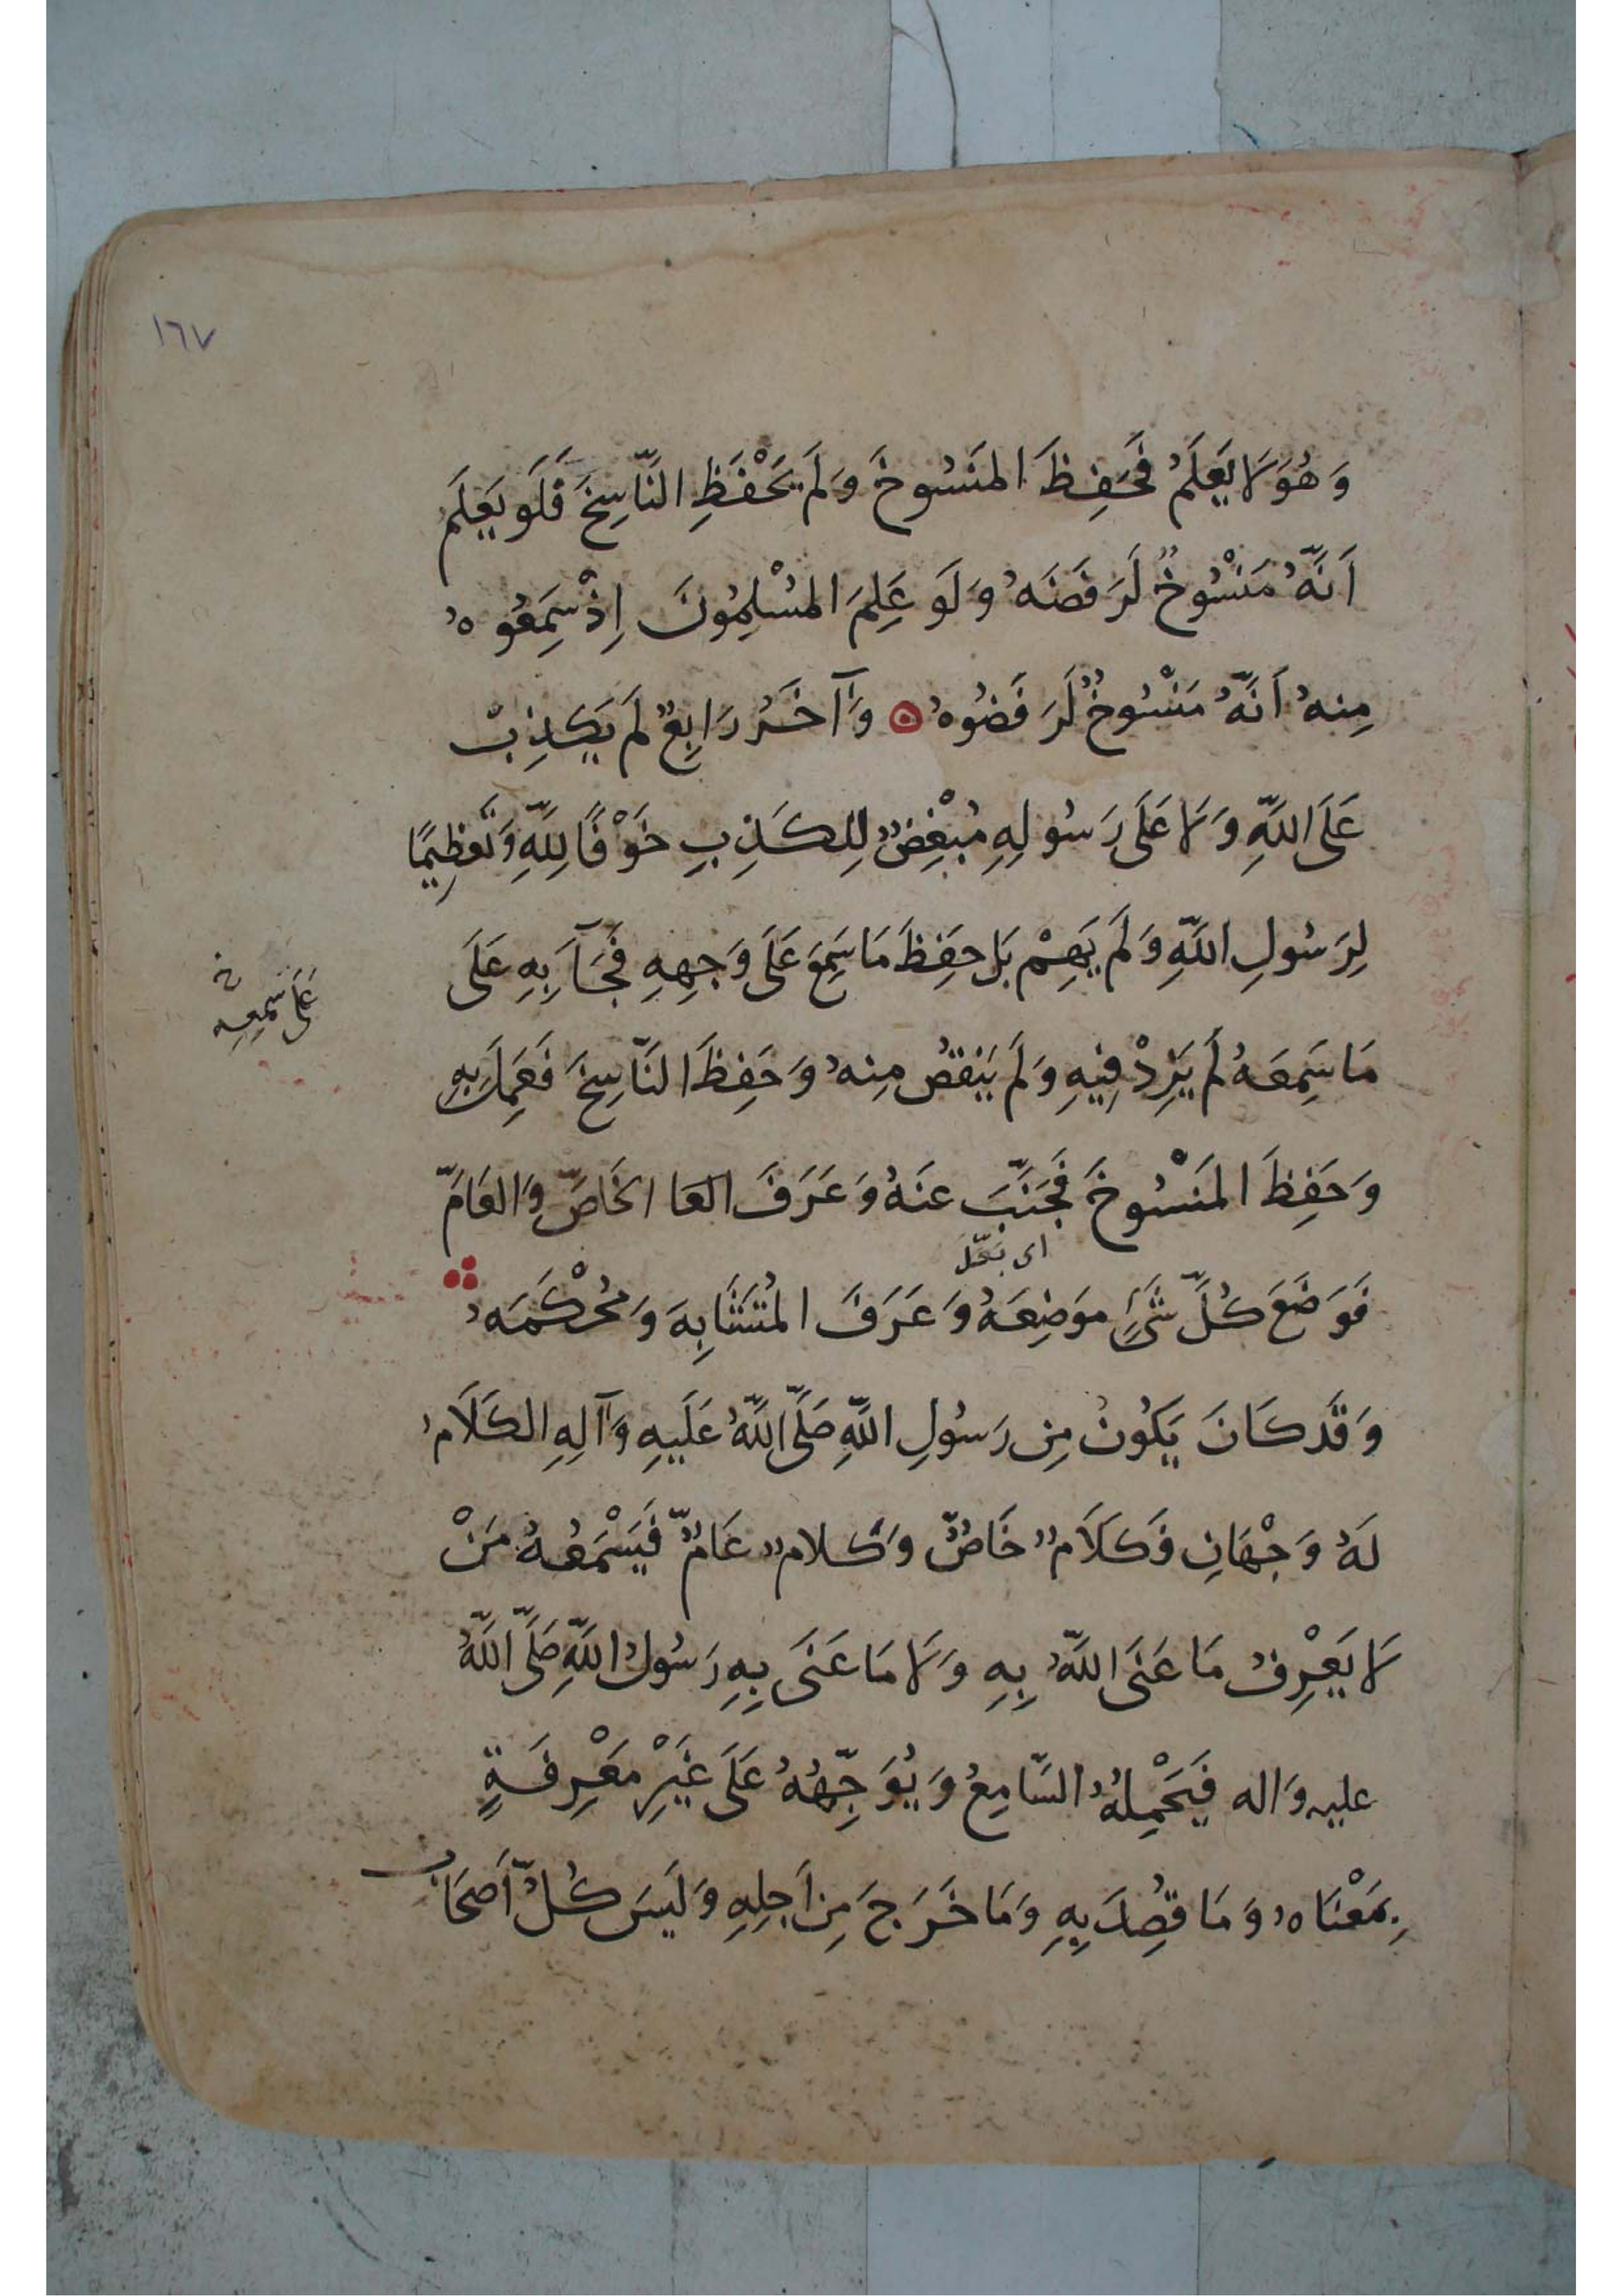 ١٦٧
وَهُوَ لَا يَعْلَمُ فَحَفِظَ المَنسُوخَ وَلَم يَحْفَظِ النَّاسِخَ فَلَو يَعْلَم
اَنَّهُ مَنْسُوخٌ لَرَفَضَهُ وَلَو عَلِمَ المُسْلِمُونَ اِذْ سَمِعُوهُ
مِنهُ اَنَّهُ مَنْسُوخٌ لَرَفَضُوهُ وَآخَرُ رَابِعٌ لَم يَكذِبْ
عَلَى اللَّهِ وَلَا عَلَى رَسُولِهِ مُبْغِضٌ لِلكَذِبِ خَوْفًا لِلَّهِ وَتَعظِيمًا
لِرَسُولِ اللَّهِ وَلَم يَهِمْ بَل حَفِظَ مَا سَمِعَ عَلَى وَجهِهِ فَجَآءَ بِهِ عَلَى
عَلَى سَمعِهِ
مَا سَمِعَهُ لَم يَزِدْ فِيهِ وَلَم يَنقُص مِنهُ وَحَفِظَ النَّاسِخَ فَعَمِلَ بِهِ
وَحَفِظَ المَنْسُوخَ فَجَنَّبَ عَنهُ وَعَرَفَ العَا الخَاصَّ وَالعَامَّ
فَوَضَعَ كُلَّ شَىءٍ مَوضِعَهُ وَعَرَفَ المُتَشَابِهَ وَمُحْكَمَهُ
وَقَد كَانَ يَكُونُ مِن رَسُولِ اللَّهِ صَلَّى اللَّهُ عَلَيهِ وَآلِهِ الكَلَامُ
لَهُ وَجْهَانِ فَكَلَامٌ خَاصٌّ وَكَلامٌ عَامٌّ فَيَسْمَعُهُ مَنْ
لَا يَعْرِفُ مَا عَنَى اللَّهُ بِهِ وَلَا مَا عَنَى بِهِ رَسُولُ اللَّهِ صَلَّى اللَّهُ
عليه وَاله فَيَحْمِلُهُ السَّامِعُ وَيُوَجِّهُهُ عَلَى غَيْرِ مَعْرِفَةٍ
بِمَعْنَاهُ وَمَا قُصِدَ بِهِ وَمَا خَرَجَ مِن اَجلِهِ وَلَيسَ كُلُّ اَصحَابِ